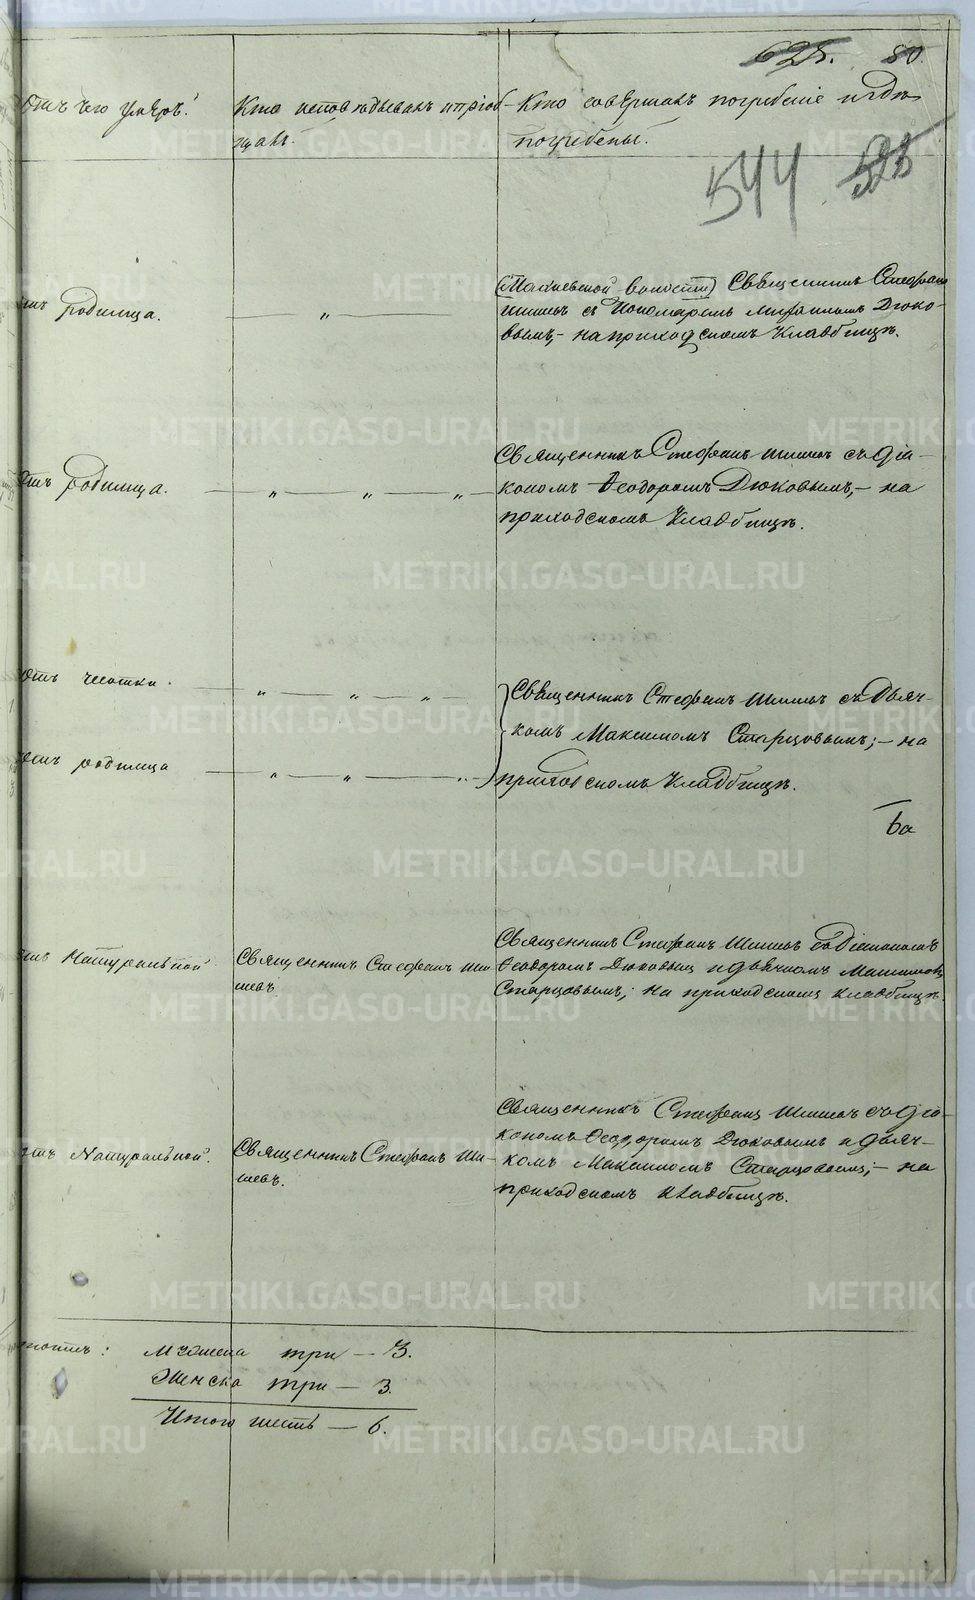 625. 80
Отъ чего умеръ.
Кто исповѣдывалъ и пріоб-
щалъ.
Кто совершалъ погребеніе и гдѣ
погребены.
544 525
отъ родимца.
„
волости) Священникъ Стефанъ
Шишевъ съ Пономаремъ Дюко-
вымъ,- на приходскомъ Кладбищѣ.
отъ родимца.
„ „ „
Священникъ Стефанъ Шишевъ съ діа-
кономъ Ѳеодоромъ Дюковымъ,- на
приходскомъ Кладбищѣ.
отъ чахотки.
„ „ „
Священникъ Стефанъ Шишевъ съ Дьяч-
комъ Максимомъ Старцовымъ;- на
приходскомъ Кладбищѣ.
отъ родимца
„ „ „
отъ Натуральной
Священникъ Стефанъ Ши-
шевъ.
Священникъ Стефанъ Шишевъ съ Діакономъ
Ѳеодоромъ Дюковымъ и дьячкомъ Максимомъ
Старцовымъ; на приходскомъ кладбищѣ.
отъ Натуральной.
Священникъ Стефанъ Ши-
шевъ.
Священникъ Стефанъ Шишевъ съ діа-
кономъ Ѳеодоромъ Дюковымъ и дьяч-
комъ Максимомъ Старцовымъ;- на
приходскомъ кладбищѣ.
Мужеска три - 3.
Женска три - 3.
Итого шесть - 6.
METRIKI.GASO-URAL.RU